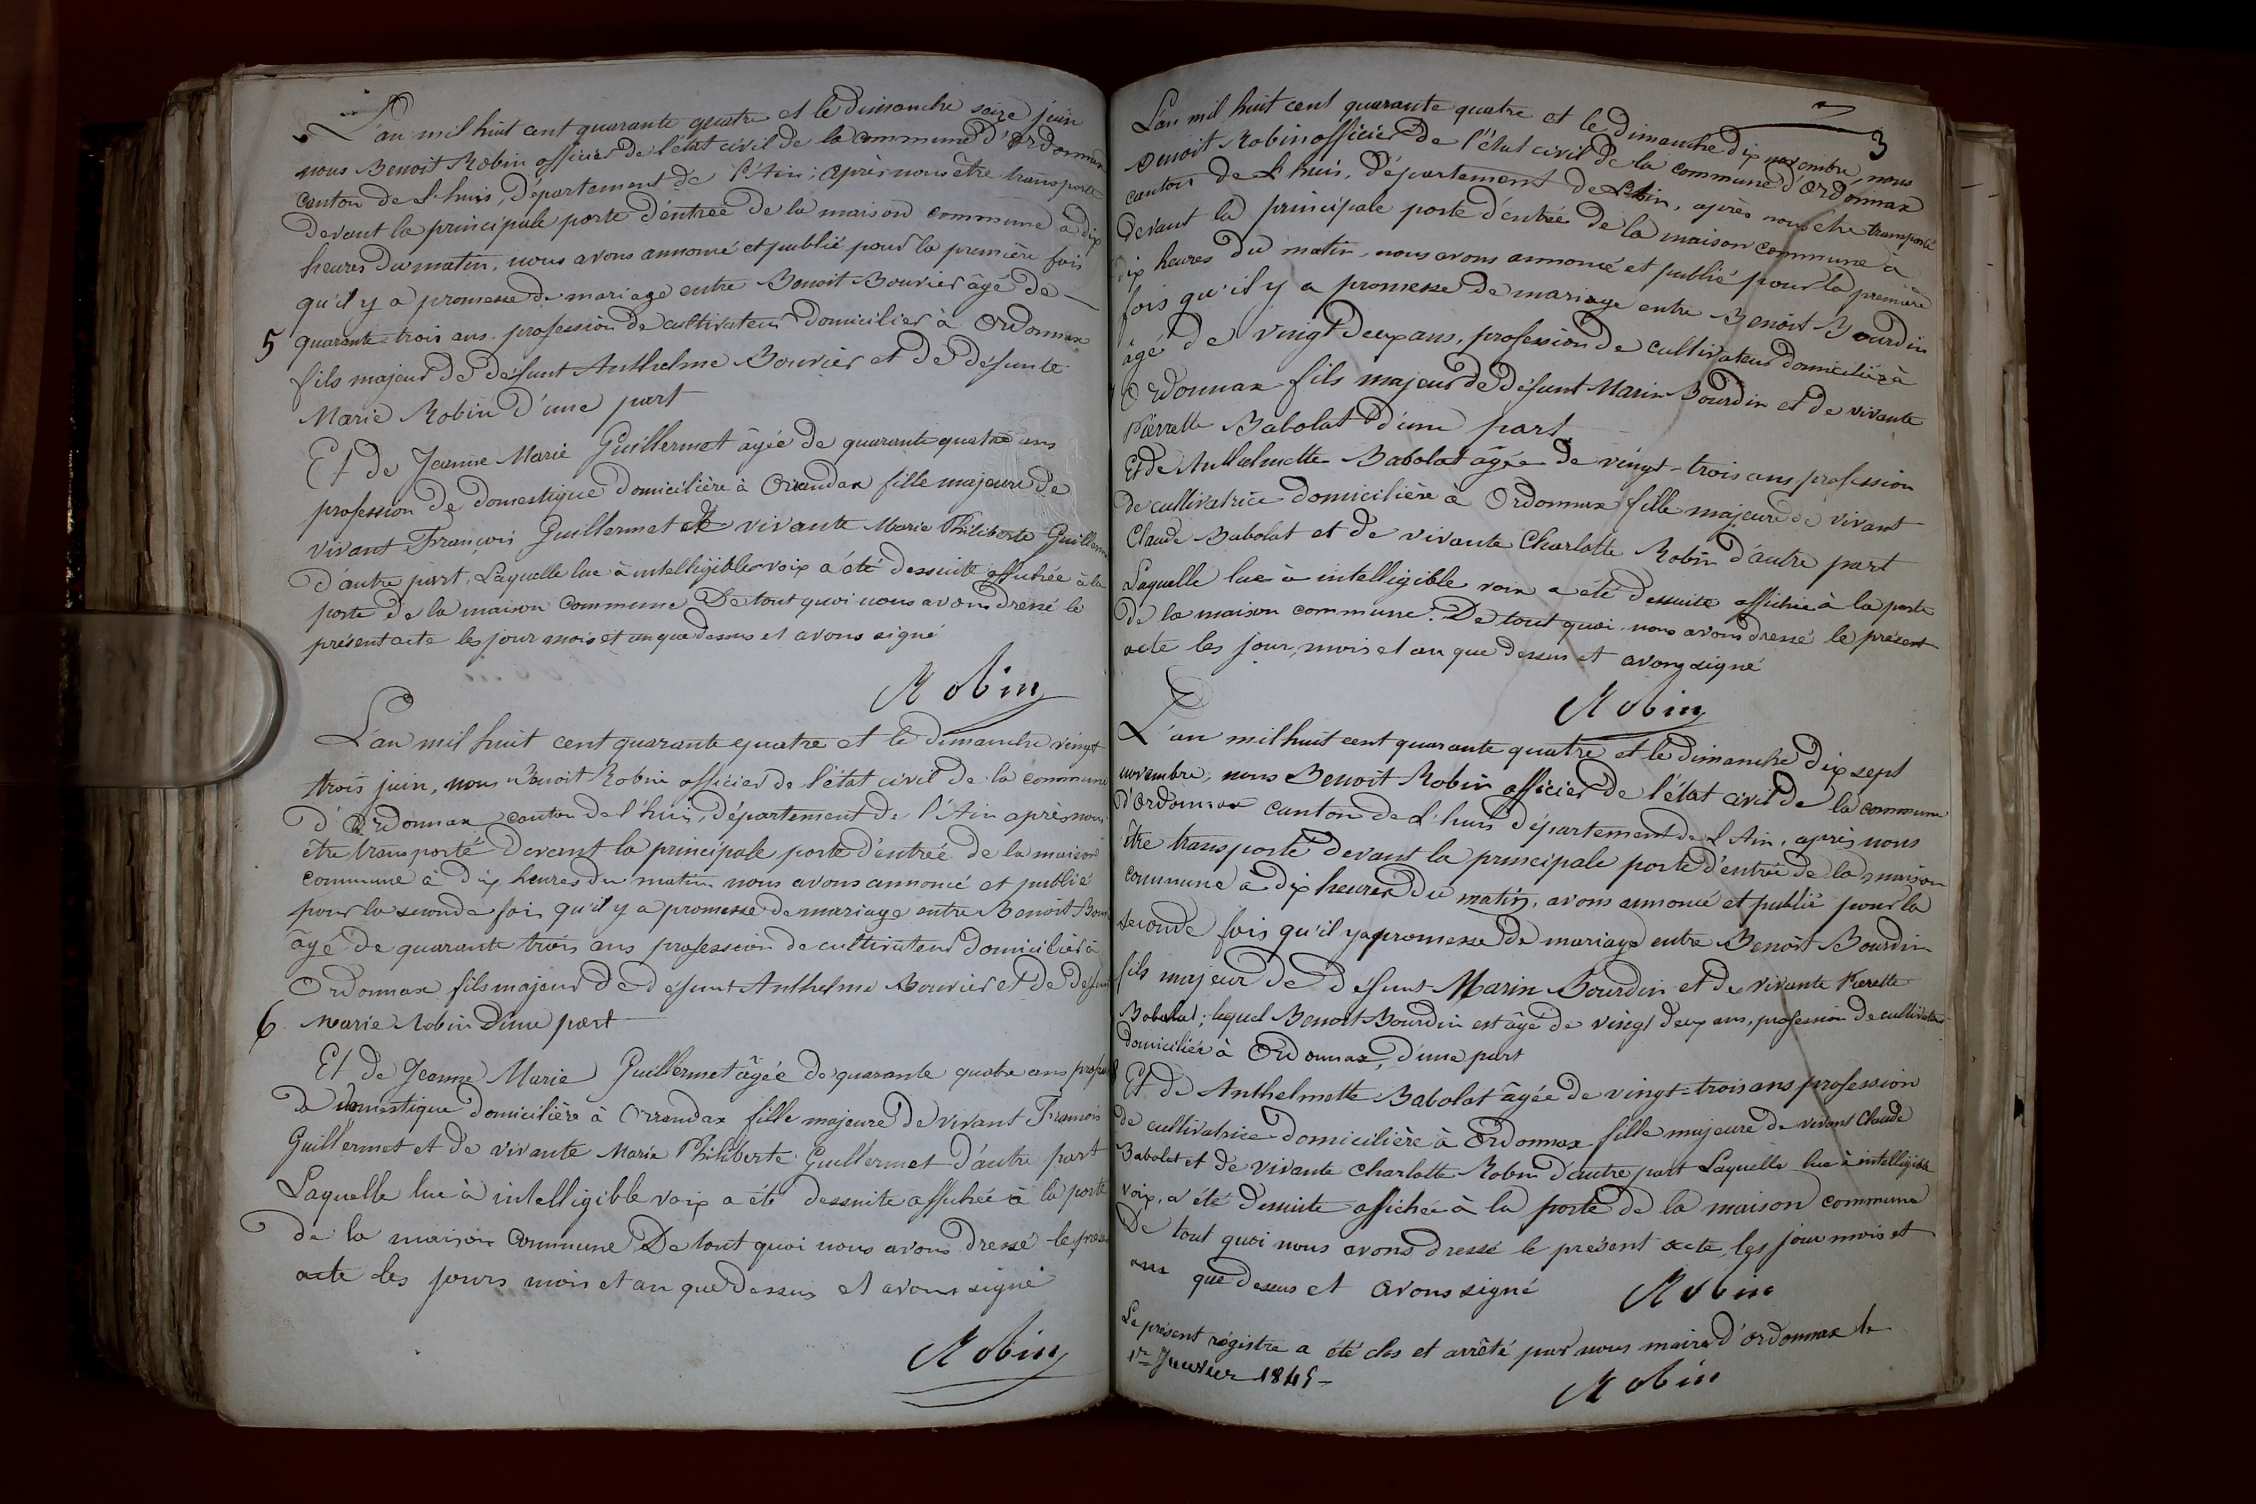 L'an mil huit cent quarante quatre et le dimanche seize juin
nous Benoit Robin officier de l'état civil de la commune d'Ordonnax
canton de L'huis, département de l'Ain; après nous être transporté
devant la principale porte d'entrée de la maison commune à dix
heures du matin, nous avons annoncé et publié pour la première fois
qu'il y a promesse de mariage entre Benoit Bouvier âgé de
5 quarante-trois ans. profession de cultivateur domicilier à Ordonnax
fils majeur de défunt Anthelme Bouvier et de défunte
Marie Robin d'une part
Et de Jeanne Marie Guillermet âgée de quarante quatre ans
profession de domestique domicilière à fille majeure de
vivant François Guillermet et de vivante Marie Philiberte
d'autre part, Laquelle lue à intelligible voix a été dessuite affichée à la
porte de la maison commune De tout quoi nous avons dressé le
présent acte les jour mois et an que dessus et avons signé
Robin
L'an mil huit cent quarante quatre et le dimanche vingt
trois juin, nous Benoit Robin officier de l'état civil de la commune
d'Ordonnax canton de l'huis, département de l'Ain après nous
être transporté devant la principale porte d'entrée de la maison
commune à dix heures du matin nous avons annoncé et publié
pour la seconde fois qu'il y a promesse de mariage entre Benoit
âgé de quarante trois ans profession de cultivateur domicilier à
Ordonnax fils majeur de défunt Anthelme Bouvier et de
6 Marie Robin d'une part
Et de Jeanne Marie Guillermet âgée de quarante quatre ans
de domestique domicilière à Orrandax fille majeure de vivant François
Guillermet et de vivante Marie Philiberte Guillermet d'autre part
Laquelle lue à intelligible voix a été dessuite affichée à la porte
de la maison commune De tout quoi nous avons dressé le
acte les jours mois et an que dessus et avons signé
Robin
3
L'an mil huit cent quarante quatre et le dimanche dix novembre, nous
Benoit Robin officier de l'état civil de la commune d'Ordonnax
canton de L'huis, département de L'Ain, après nous être transporté
devant la principale porte d'entrée de la maison commune à
dix heures du matin, nous avons annoncé et publié pour la première
fois qu'il y a promesse de mariage entre Benoit Bourdin
âgé de vingt deux ans, profession de cultivateur domicilier à
Ordonnax fils majeur de défunt Marin Bourdin et de vivante
Pierrette Babolat d'une part
Et de Anthelmette Babolat âgée de vingt-trois ans profession
de cultivatrice domicilière à Ordonnax fille majeure de vivant
Claude Babolat et de vivante Charlotte Robin d'autre part
Laquelle lue à intelligible voix a été dessuite affichée à la porte
de la maison commune. De tout quoi nous avons dressé le présent
acte les jour, mois et an que dessus et avons signé
Robin
L'an mil huit cent quarante quatre et le dimanche dix sept
novembre, nous Benoit Robin officier de l'état civil de la commune
d'Ordonnax canton de L'huis département de L'Ain, après nous
être transporté devant la principale porte d'entrée de la maison
commune à dix heures du matin, avons annoncé et publié pour la
seconde fois qu'il y a promesse de mariage entre Benoit Bourdin
fils majeur de défunt Marin Bourdin et de vivante Pierette
Babolat; lequel Benoit Bourdin est âgé de vingt deux ans, profession de cultivateur
domicilier à Ordonnax, d'une part
Et de Anthelmette Babolat âgée de vingt-trois ans profession
de cultivatrice domicilière à Ordonnax fille majeure de vivant Claude
Babolat et de vivante Charlotte Robin d'autre part Laquelle lue à intelligible
voix, a été dessuite affichée à la porte de la maison commune
De tout quoi nous avons dressé le présent acte, les jour mois et
an que dessus et avons signé
Robin
Le présent régistre a été clos et arrêté par nous maire d'Ordonnax le
1er Janvier 1845
Robin